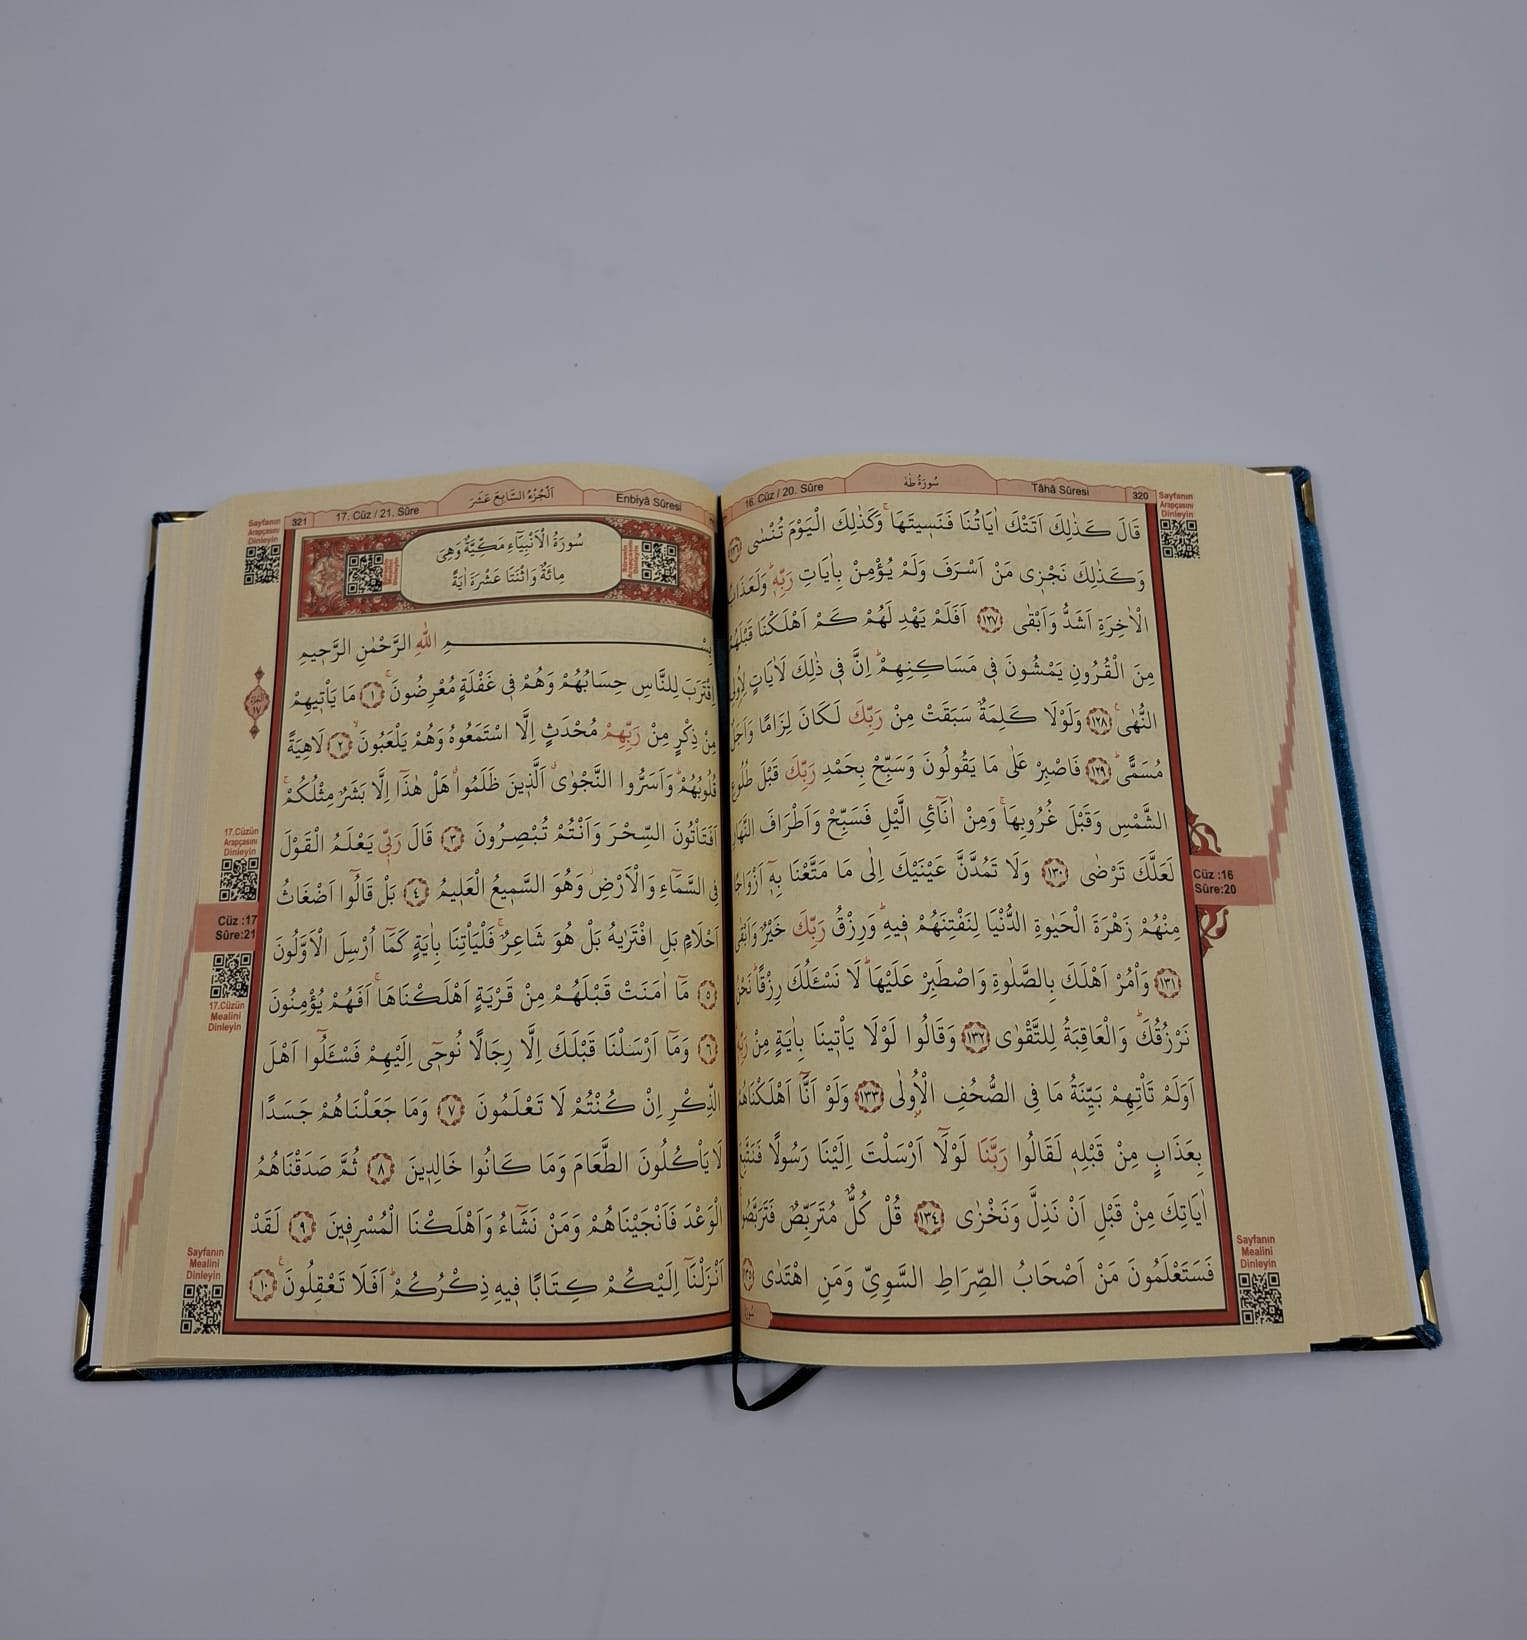 320
Tâhâ Sûresi
سُورَةُ طٰهٰ
16. Cüz / 20. Sûre
Sayfanın
Arapçasını
Dinleyin
قَالَ كَذٰلِكَ اَتَتْكَ اٰيَاتُنَا فَنَس۪يتَهَاۚ وَكَذٰلِكَ الْيَوْمَ تُنْسٰى ﴿١٢٦﴾
وَكَذٰلِكَ نَجْز۪ي مَنْ اَسْرَفَ وَلَمْ يُؤْمِنْ بِاٰيَاتِ رَبِّه۪ۜ وَلَعَذَابُ
الْاٰخِرَةِ اَشَدُّ وَاَبْقٰى ﴿١٢٧﴾ اَفَلَمْ يَهْدِ لَهُمْ كَمْ اَهْلَكْنَا قَبْلَهُمْ
مِنَ الْقُرُونِ يَمْشُونَ ف۪ي مَسَاكِنِهِمْۜ اِنَّ ف۪ي ذٰلِكَ لَاٰيَاتٍ لِاُو۬لِي
النُّهٰى۟ ﴿١٢٨﴾ وَلَوْلَا كَلِمَةٌ سَبَقَتْ مِنْ رَبِّكَ لَكَانَ لِزَامًا وَاَجَلٌ
مُسَمًّىۜ ﴿١٢٩﴾ فَاصْبِرْ عَلٰى مَا يَقُولُونَ وَسَبِّحْ بِحَمْدِ رَبِّكَ قَبْلَ طُلُوعِ
الشَّمْسِ وَقَبْلَ غُرُوبِهَاۚ وَمِنْ اٰنَٓائِ الَّيْلِ فَسَبِّحْ وَاَطْرَافَ النَّهَارِ
لَعَلَّكَ تَرْضٰى ﴿١٣٠﴾ وَلَا تَمُدَّنَّ عَيْنَيْكَ اِلٰى مَا مَتَّعْنَا بِه۪ٓ اَزْوَاجًا
مِنْهُمْ زَهْرَةَ الْحَيٰوةِ الدُّنْيَا لِنَفْتِنَهُمْ ف۪يهِۜ وَرِزْقُ رَبِّكَ خَيْرٌ وَاَبْقٰى
﴿١٣١﴾ وَأْمُرْ اَهْلَكَ بِالصَّلٰوةِ وَاصْطَبِرْ عَلَيْهَاۜ لَا نَسْـَٔلُكَ رِزْقًاۜ نَحْنُ
نَرْزُقُكَۜ وَالْعَاقِبَةُ لِلتَّقْوٰى ﴿١٣٢﴾ وَقَالُوا لَوْلَا يَأْت۪ينَا بِاٰيَةٍ مِنْ رَبِّه۪ۜ
اَوَلَمْ تَأْتِهِمْ بَيِّنَةُ مَا فِي الصُّحُفِ الْاُو۫لٰى ﴿١٣٣﴾ وَلَوْ اَنَّٓا اَهْلَكْنَاهُمْ
بِعَذَابٍ مِنْ قَبْلِه۪ لَقَالُوا رَبَّنَا لَوْلَٓا اَرْسَلْتَ اِلَيْنَا رَسُولًا فَنَتَّبِعَ
اٰيَاتِكَ مِنْ قَبْلِ اَنْ نَذِلَّ وَنَخْزٰى ﴿١٣٤﴾ قُلْ كُلٌّ مُتَرَبِّصٌ فَتَرَبَّصُواۚ
فَسَتَعْلَمُونَ مَنْ اَصْحَابُ الصِّرَاطِ السَّوِيِّ وَمَنِ اهْتَدٰى ﴿١٣٥﴾
Cüz :16
Sûre:20
Sayfanın
Mealini
Dinleyin
Enbiyâ Sûresi
اَلْجُزْءُ السَّابِعَ عَشَرَ
17. Cüz / 21. Sûre
321
Sayfanın
Arapçasını
Dinleyin
سُورَةُ الْاَنْبِيَٓاءِ مَكِّيَّةٌ وَهِيَ
مِائَةٌ وَاثْنَتَا عَشْرَةَ اٰيَةً
بِسْمِ اللّٰهِ الرَّحْمٰنِ الرَّح۪يمِ
اِقْتَرَبَ لِلنَّاسِ حِسَابُهُمْ وَهُمْ ف۪ي غَفْلَةٍ مُعْرِضُونَۚ ﴿١﴾ مَا يَأْت۪يهِمْ
مِنْ ذِكْرٍ مِنْ رَبِّهِمْ مُحْدَثٍ اِلَّا اسْتَمَعُوهُ وَهُمْ يَلْعَبُونَۙ ﴿٢﴾ لَاهِيَةً
قُلُوبُهُمْۜ وَاَسَرُّوا النَّجْوٰىۗ اَلَّذ۪ينَ ظَلَمُواۗ هَلْ هٰذَٓا اِلَّا بَشَرٌ مِثْلُكُمْۚ
اَفَتَأْتُونَ السِّحْرَ وَاَنْتُمْ تُبْصِرُونَ ﴿٣﴾ قَالَ رَبّ۪ي يَعْلَمُ الْقَوْلَ
فِي السَّمَٓاءِ وَالْاَرْضِۘ وَهُوَ السَّم۪يعُ الْعَل۪يمُ ﴿٤﴾ بَلْ قَالُٓوا اَضْغَاثُ
اَحْلَامٍ بَلِ افْتَرٰيهُ بَلْ هُوَ شَاعِرٌۚ فَلْيَأْتِنَا بِاٰيَةٍ كَمَٓا اُرْسِلَ الْاَوَّلُونَ
﴿٥﴾ مَٓا اٰمَنَتْ قَبْلَهُمْ مِنْ قَرْيَةٍ اَهْلَكْنَاهَاۚ اَفَهُمْ يُؤْمِنُونَ
﴿٦﴾ وَمَٓا اَرْسَلْنَا قَبْلَكَ اِلَّا رِجَالًا نُوح۪ٓي اِلَيْهِمْ فَسْـَٔلُٓوا اَهْلَ
الذِّكْرِ اِنْ كُنْتُمْ لَا تَعْلَمُونَ ﴿٧﴾ وَمَا جَعَلْنَاهُمْ جَسَدًا
لَا يَأْكُلُونَ الطَّعَامَ وَمَا كَانُوا خَالِد۪ينَ ﴿٨﴾ ثُمَّ صَدَقْنَاهُمُ
الْوَعْدَ فَاَنْجَيْنَاهُمْ وَمَنْ نَشَٓاءُ وَاَهْلَكْنَا الْمُسْرِف۪ينَ ﴿٩﴾ لَقَدْ
اَنْزَلْنَٓا اِلَيْكُمْ كِتَابًا ف۪يهِ ذِكْرُكُمْۜ اَفَلَا تَعْقِلُونَ۟ ﴿١٠﴾
17.Cüzün
Arapçasını
Dinleyin
Cüz :17
Sûre:21
17.Cüzün
Mealini
Dinleyin
Sayfanın
Mealini
Dinleyin